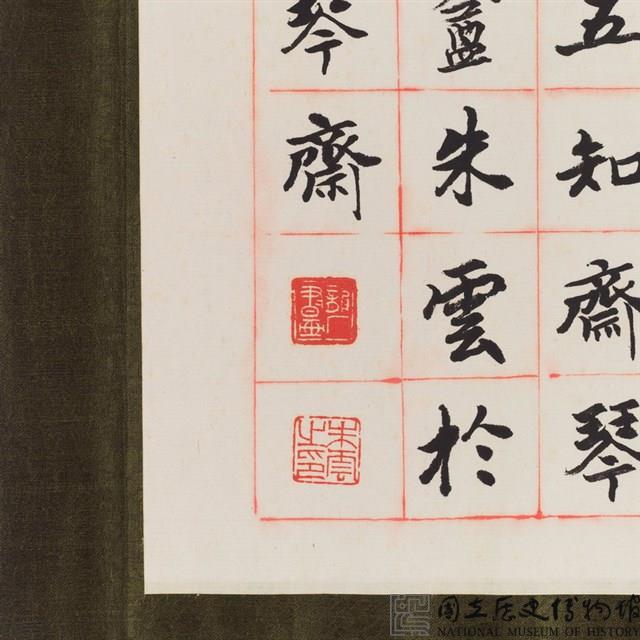 五知齋琴
盦朱雲於
琴齋
朱雲之印
國立歷史博物館
NATIONAL MUSEUM OF HISTORY